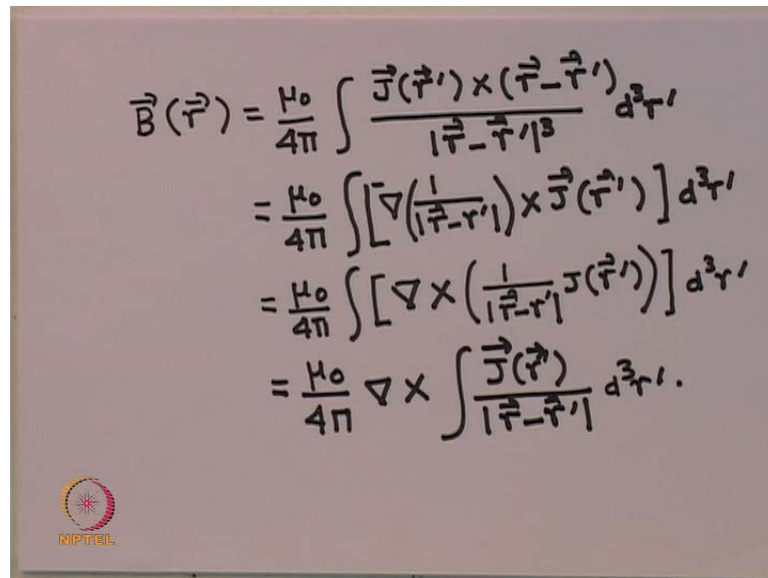 $\vec{B}(\vec{r}) = \frac{\mu_0}{4\pi} \int \frac{\vec{J}(\vec{r}') \times (\vec{r}-\vec{r}')}{|\vec{r}-\vec{r}'|^3} d^3r'$
$= \frac{\mu_0}{4\pi} \int \left[ \nabla \left( \frac{1}{|\vec{r}-r'|} \right) \times \vec{J}(\vec{r}') \right] d^3r'$
$= \frac{\mu_0}{4\pi} \int \left[ \nabla \times \left( \frac{1}{|\vec{r}-r'|} J(\vec{r}') \right) \right] d^3r'$
$= \frac{\mu_0}{4\pi} \nabla \times \int \frac{\vec{J}(\vec{r}')}{|\vec{r}-\vec{r}'|} d^3r'.$
NPTEL